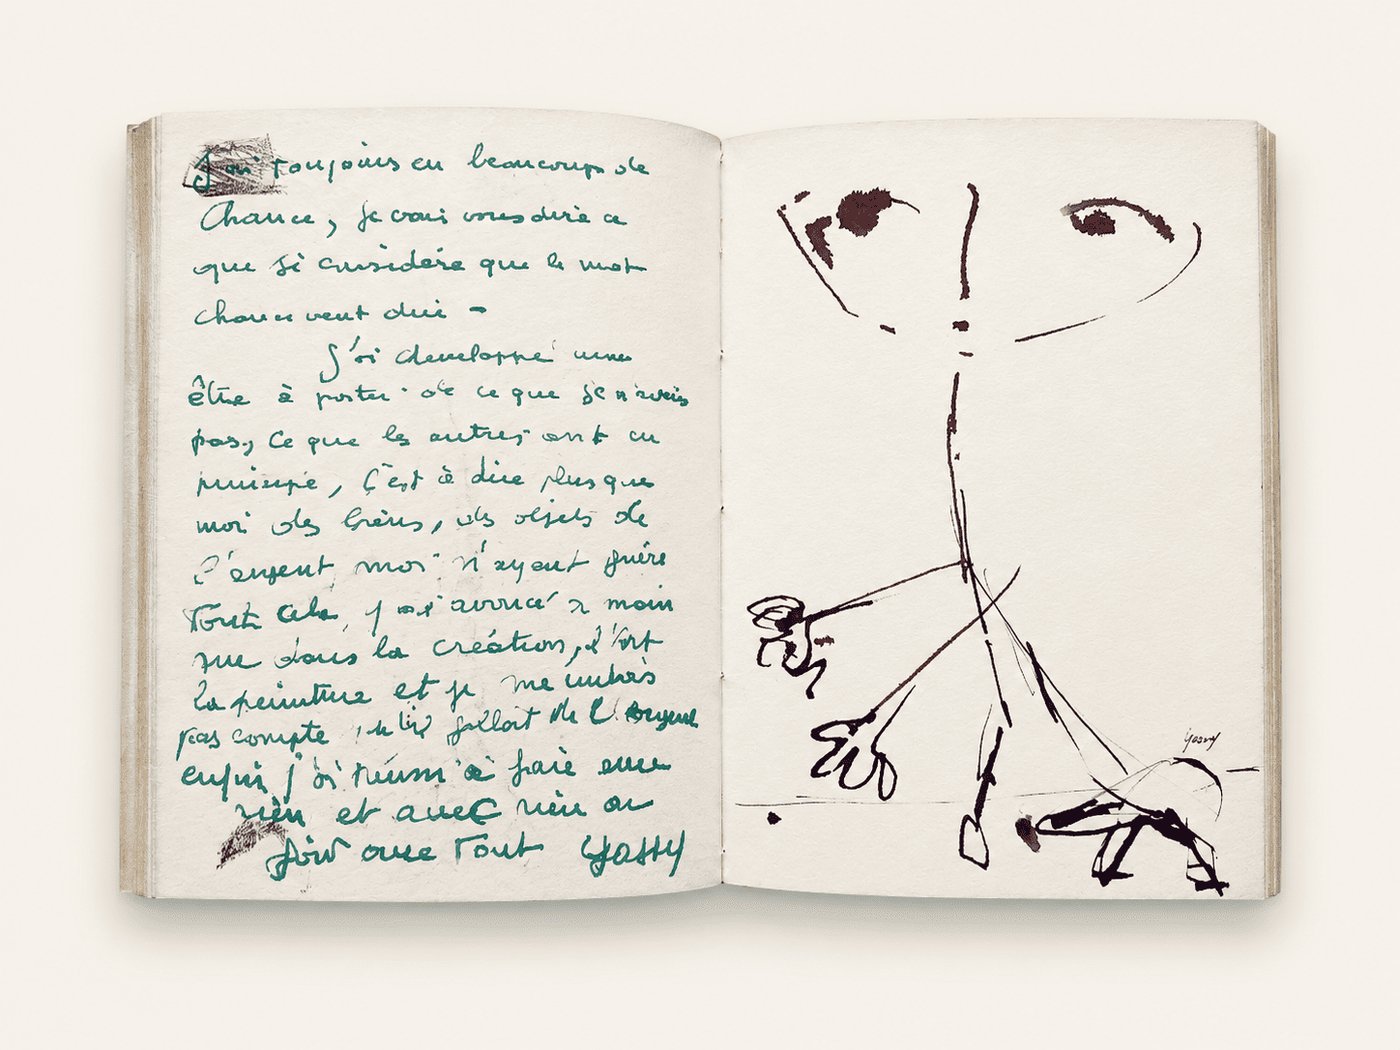 J'ai toujours eu beaucoup de
Chance, je vais vous dire ce
que je considère que le mot
chance veut dire -
J'ai developpé une
être à partir de ce que je n'avais
pas, Ce que les autres ont en
principe, C'est à dire plus que
moi des biens, des objets de
l'argent, moi n'ayant guère
Tout cela, j'ai avancé moin
que dans la création, l'Art
la peinture et je me
pas compte, fallait de l'argent
enfin j'ai réussi à faire avec
rien et avec rien on
fait avec Tout Yassy
Yassy